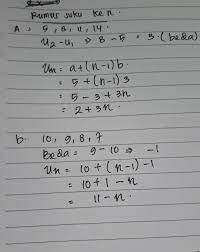 Rumus suku ke n.
A = 5, 8, 11, 14.
U2 - U1 ⇒ 8 - 5 = 3 (beda)
Un = a + (n-1) b.
= 5 + (n-1) 3
= 5 - 3 + 3n
= 2 + 3n.
b. 10, 9, 8, 7
Beda = 9 - 10 ⇒ -1
Un = 10 + (n-1) -1
= 10 + 1 - n
= 11 - n.